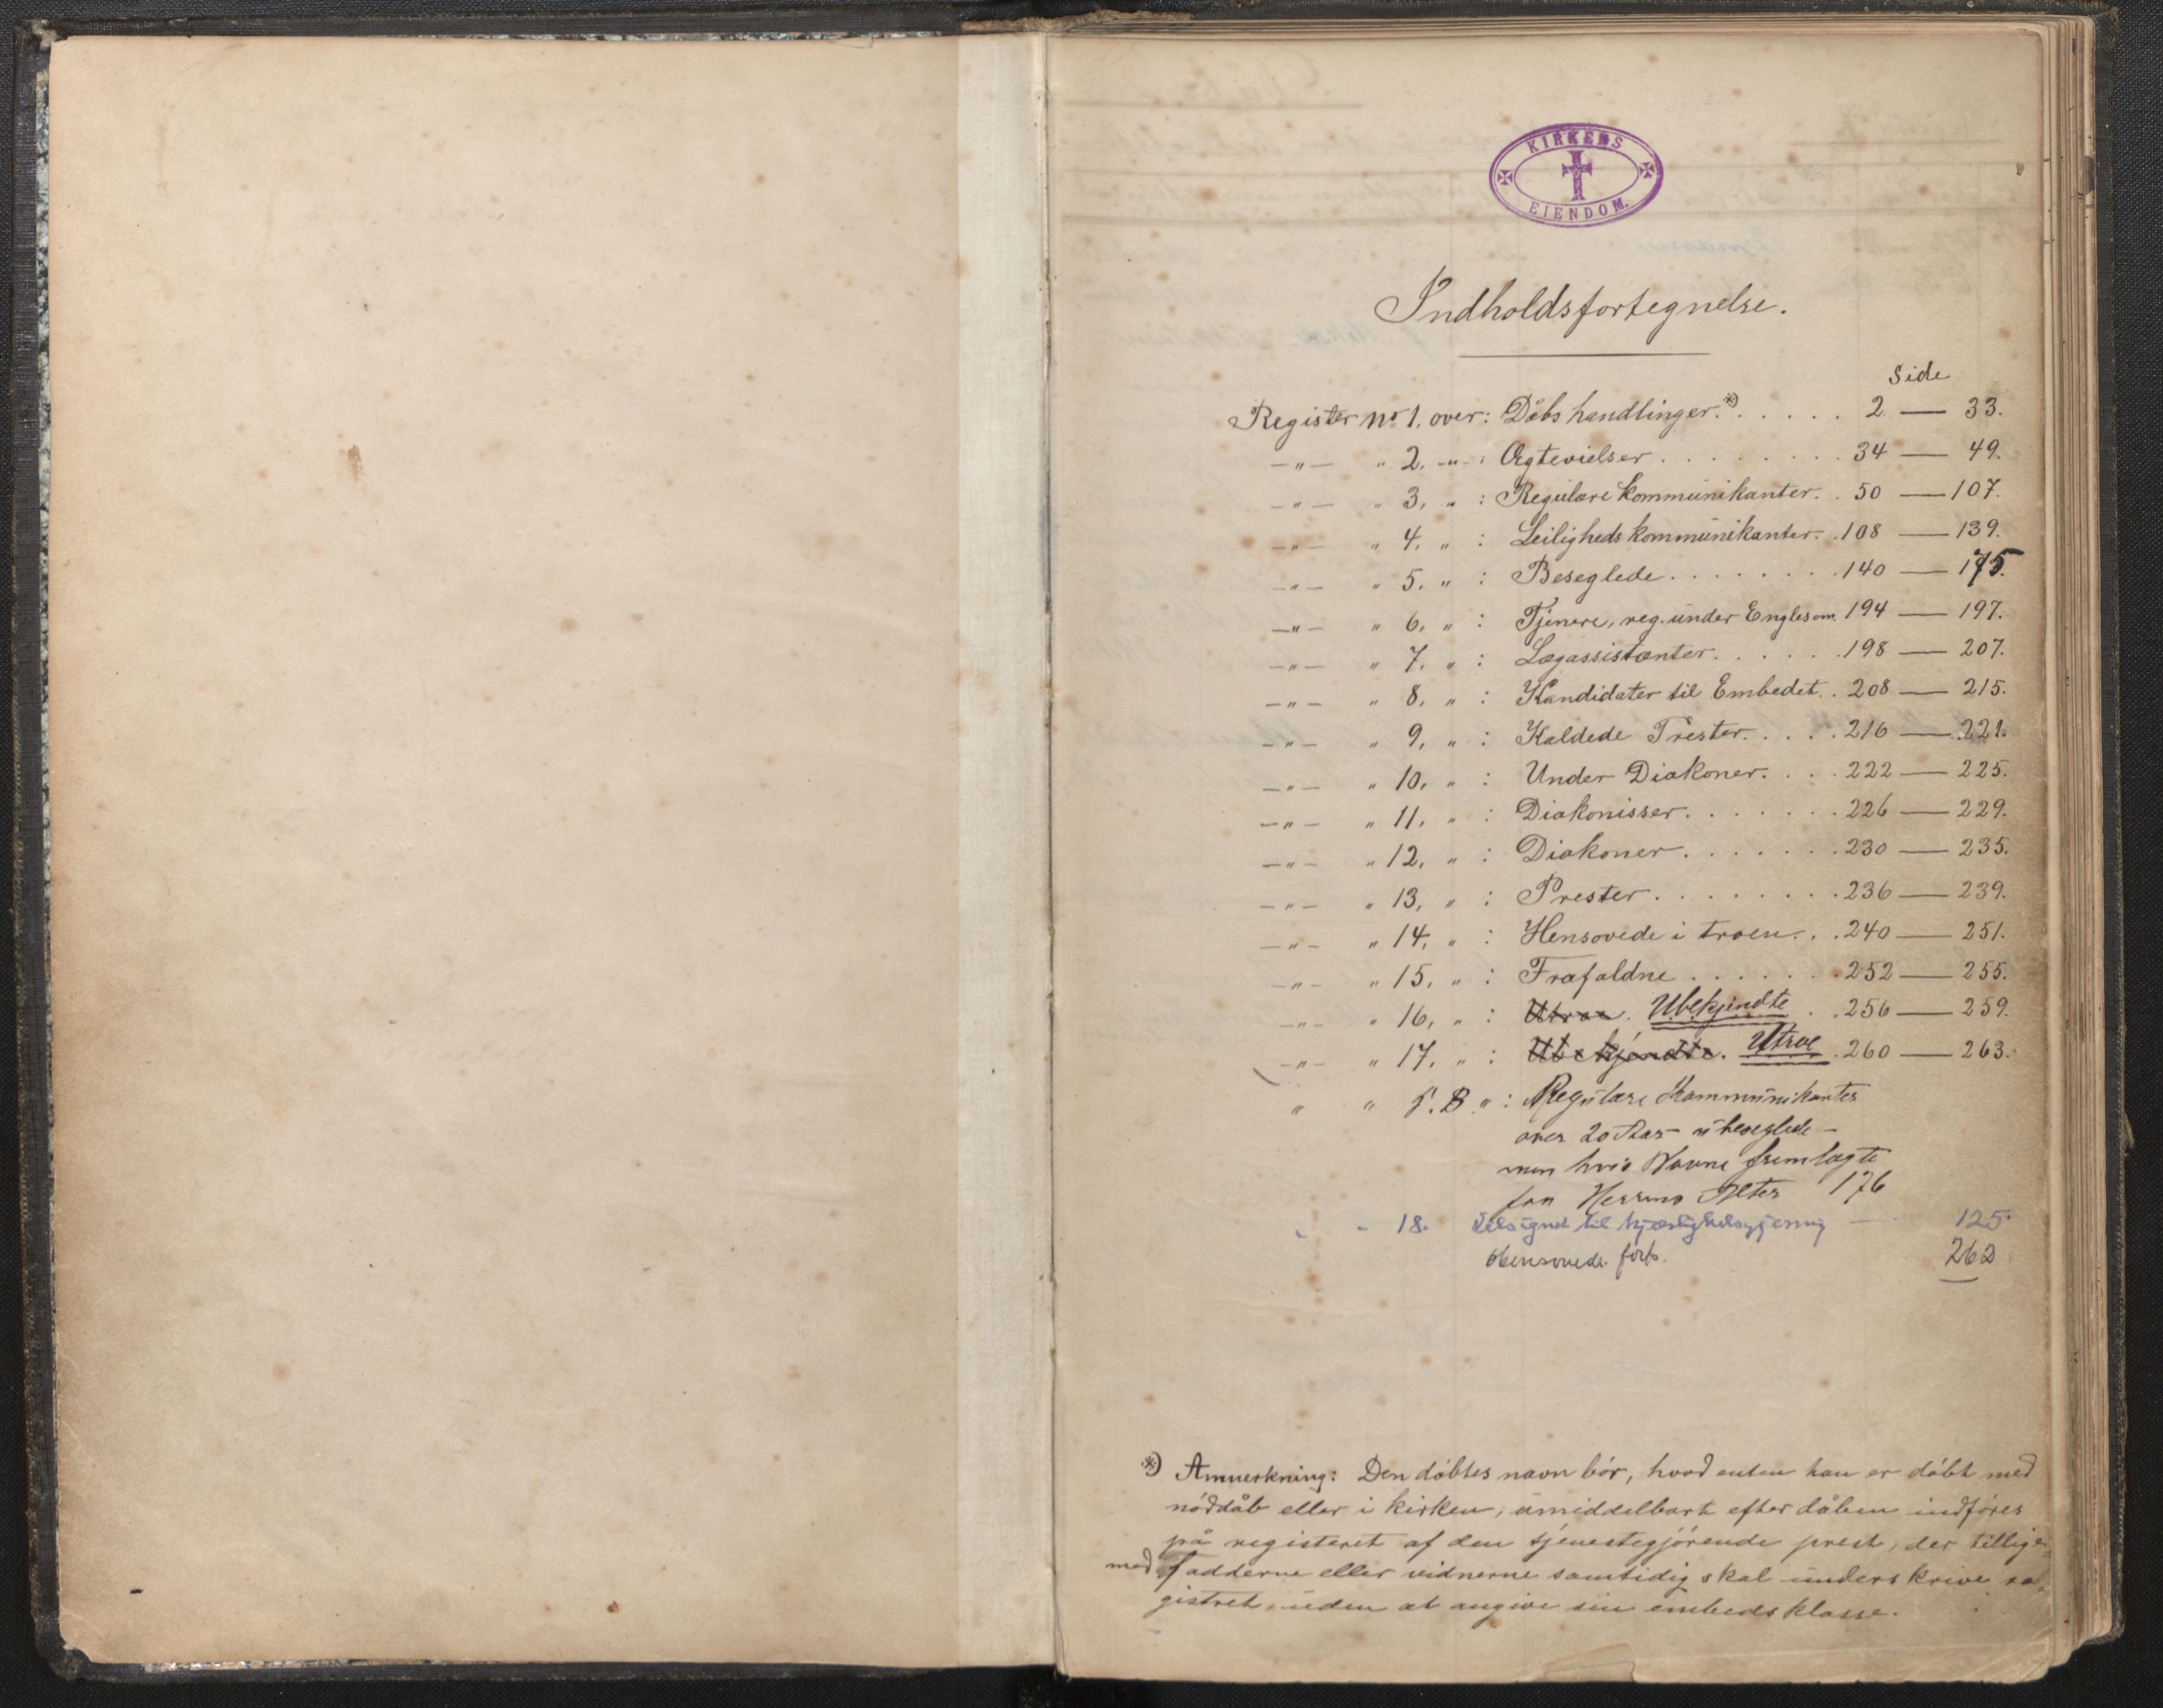 KIRKENS
EIENDOM.
Indholdsfortegnelse.
Side
Register No 1. over: Dåbshandlinger.*) . . . . . 2 — 33.
—"— " 2. —"— : Ægtevielser . . . . . . . . 34 — 49.
—"— " 3. " : Regulære kommunikanter. . 50 — 107.
—"— " 4. " : Leilighedskommunikanter. . 108 — 139.
—"— " 5. " : Beseglede . . . . . . . . 140 — 175.
—"— " 6. " : Tjenere, reg. under Engles om. 194 — 197.
—"— " 7. " : Lægassistenter. . . . . . 198 — 207.
—"— " 8. " : Kandidater til Embedet. . 208 — 215.
—"— " 9. " : Kaldede Prester. . . . . 216 — 221.
—"— " 10. " : Under Diakoner. . . . 222 — 225.
—"— " 11. " : Diakonisser. . . . . . . 226 — 229.
—"— " 12. " : Diakoner. . . . . . . 230 — 235.
—"— " 13. " : Prester. . . . . . . . . 236 — 239.
—"— " 14. " : Hensovede i troen. . . 240 — 251.
—"— " 15. " : Frafaldne . . . . . . . 252 — 255.
—"— " 16. " : Utroe. Ubekjendte . . 256 — 259.
—"— " 17. " : Ubekjendte. Utroe . 260 — 263.
" " 5.B " : Regulære Kommunikanter
over 20 Aar – ubeseglede –
men hvis Navne fremlagte
for Herrens Alter 176
" - 18. Velsignet til kjærlighedsgjerning — 125.
Hensovede forts. 262
*) Anmerkning: Den døbtes navn bør, hvad enten han er døbt med
nøddåb eller i kirken, umiddelbart efter dåben indføres
på registeret af den tjenestegjørende prest, der tillige
med fadderne eller vidnerne samtidig skal underskrive re-
gistret, uden at angive sin embedsklasse.